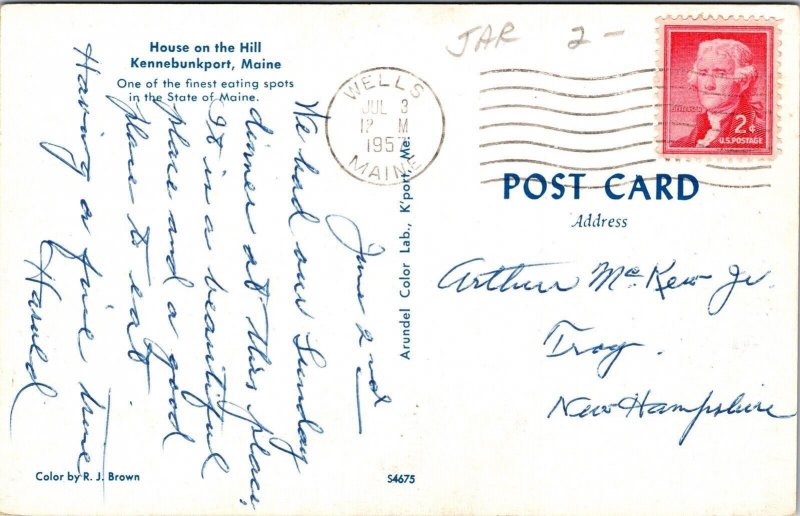 JAR 2-
House on the Hill
Kennebunkport, Maine
One of the finest eating spots
in the State of Maine.
WELLS
JUL 3
12 M
195
MAINE
2¢
U.S. POSTAGE
POST CARD
Address
Arthur McKew Jr.
Troy.
New Hampshire
June 2nd
We had our Sunday
dinner at this place,
It is a beautiful
place and a good
place to eat
Having a fine time
Harold
Arundel Color Lab., K'port, Me.
Color by R. J. Brown
S4675